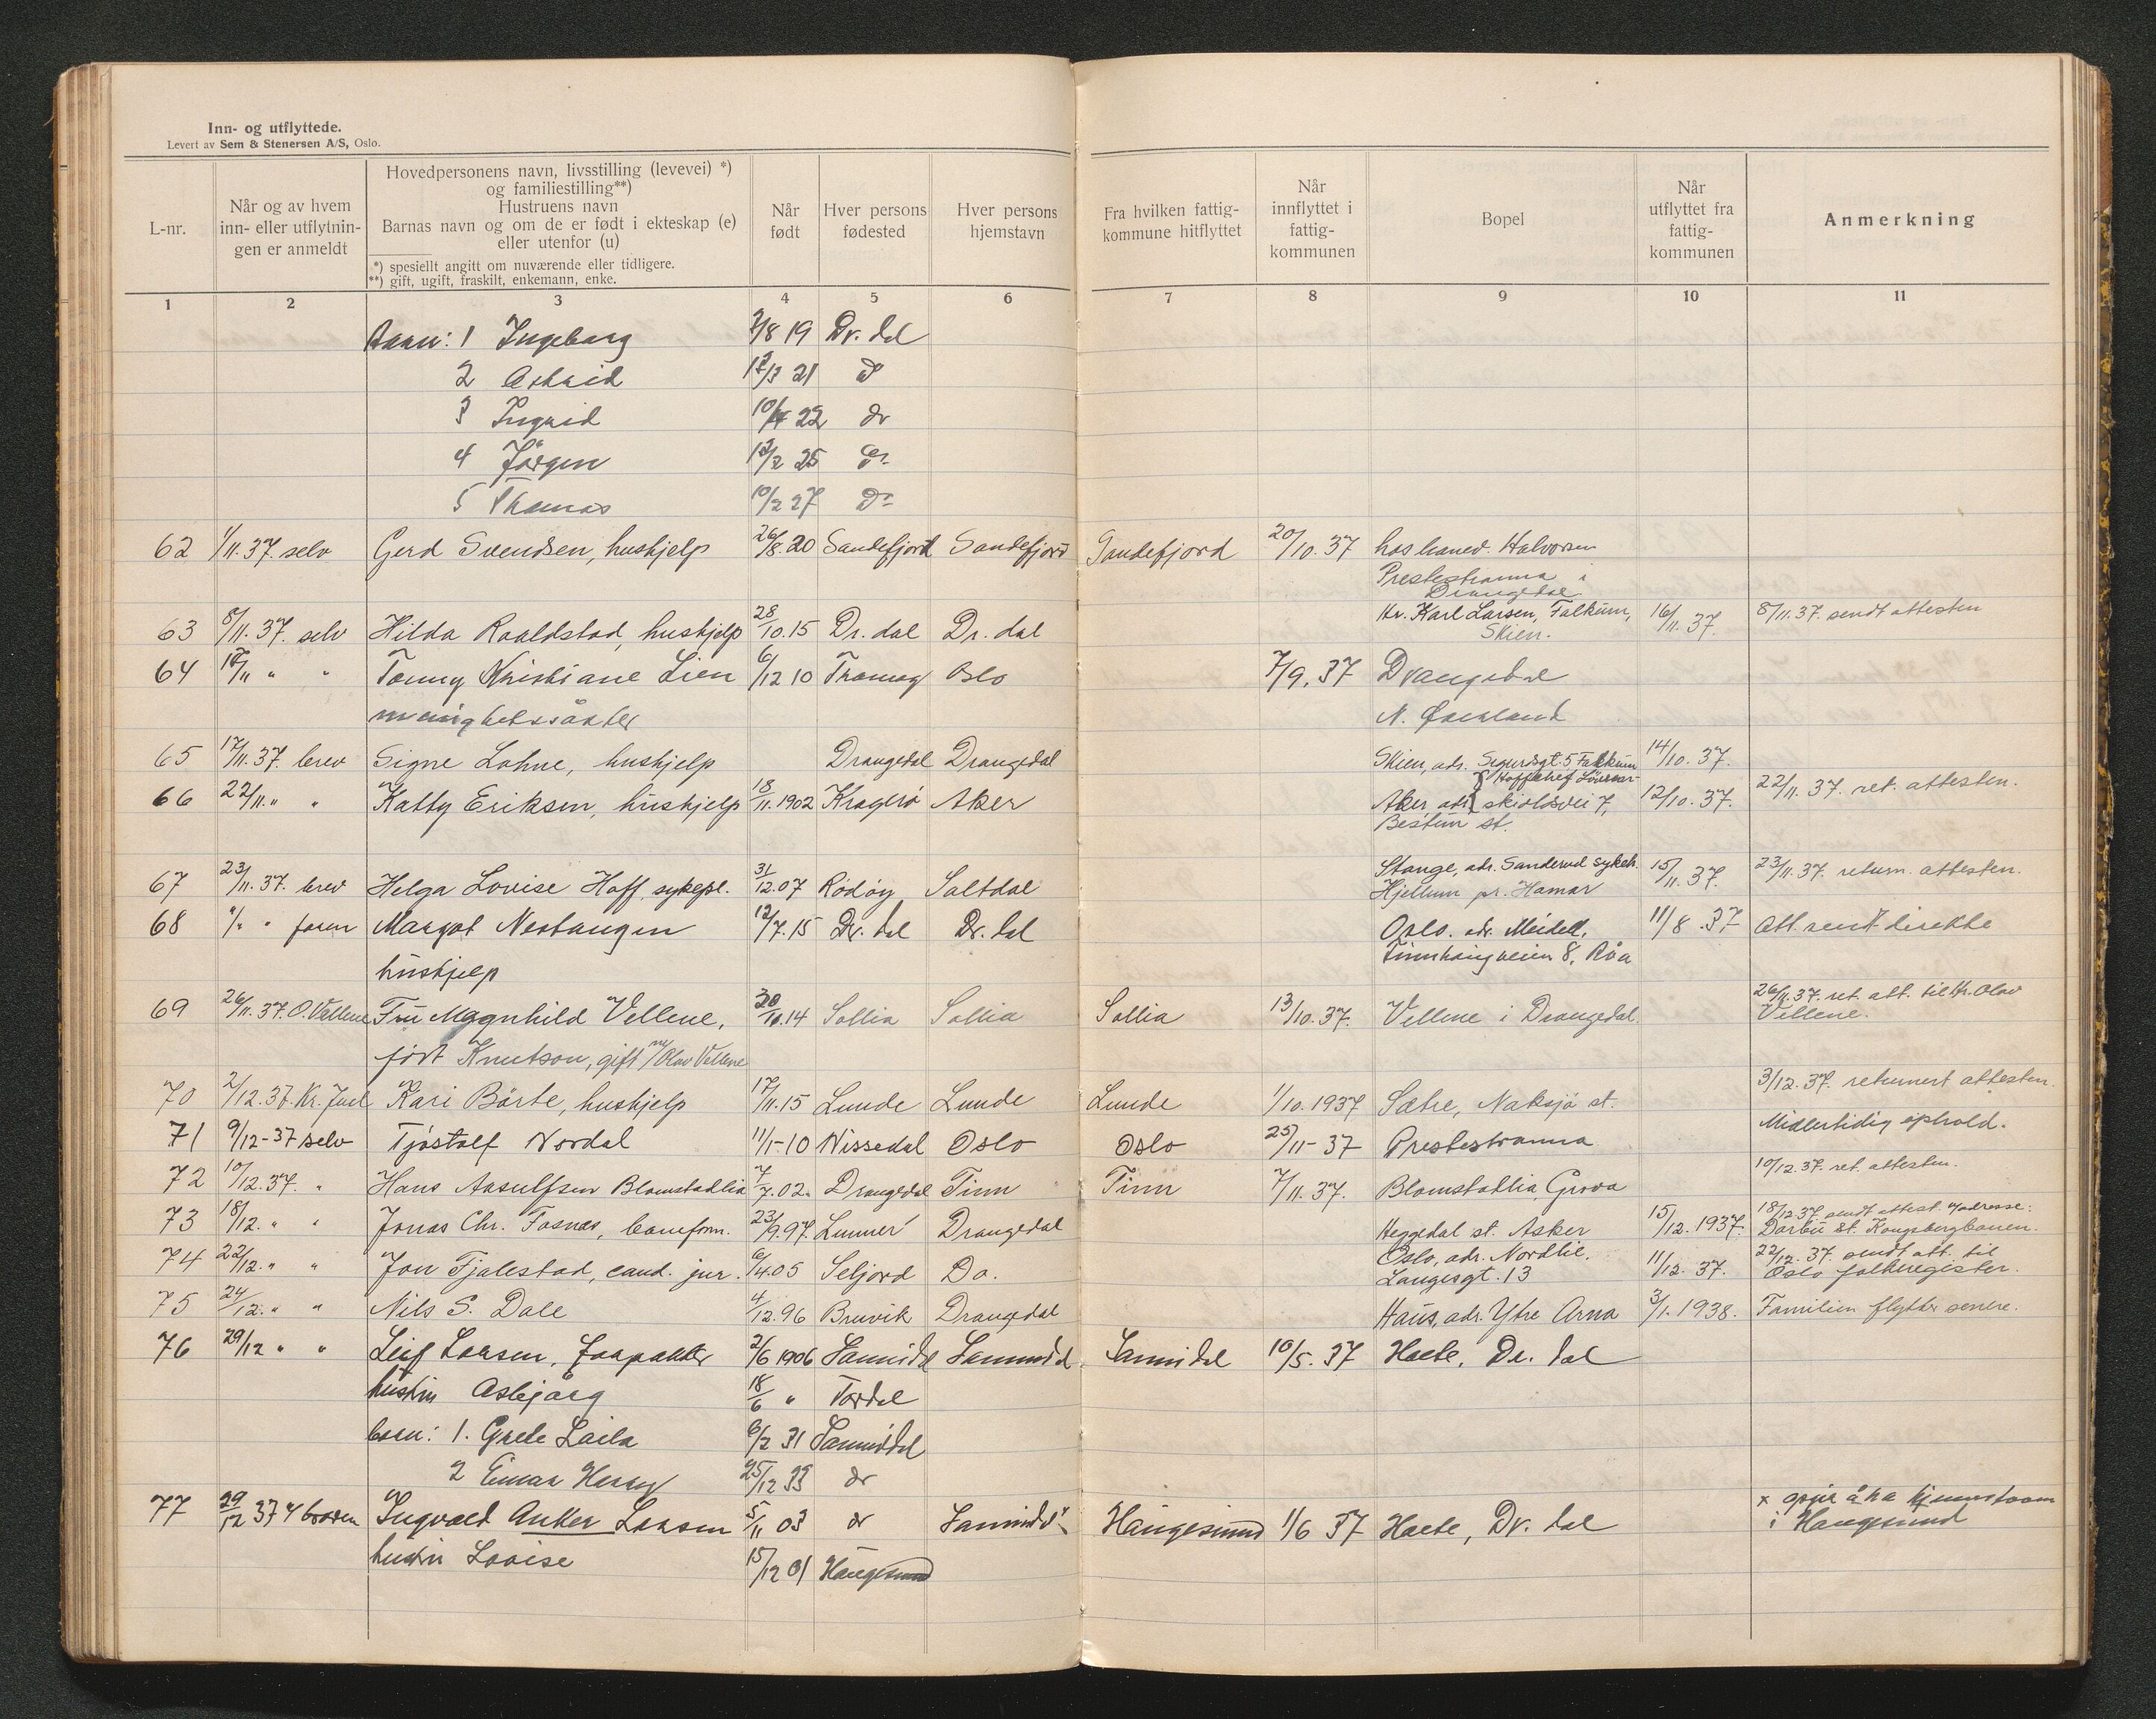 Inn- og utflyttede.
Levert av Sem & Stenersen A/S, Oslo.
L-nr.
Når og av hvem
inn- eller utflytnin-
gen er anmeldt
Hovedpersonens navn, livsstilling (levevei) *)
og familiestilling**)
Hustruens navn
Barnas navn og om de er født i ekteskap (e)
eller utenfor (u)
*) spesiellt angitt om nuværende eller tidligere.
**) gift, ugift, fraskilt, enkemann, enke.
Når
født
Hver persons
fødested
Hver persons
hjemstavn
Fra hvilken fattig-
kommune hitflyttet
Når
innflyttet i
fattig-
kommunen
Bopel
Når
utflyttet fra
fattig-
kommunen
Anmerkning
1 2 3 4 5 6 7 8 9 10 11
1 Ingeborg /8 19 Dr. dal
2 Astrid 12/3 21 d
3 Ingrid 10/4 22 do
4 Jørgen 12/2 25 do
5 Thomas 10/2 27 Do
62 1/11.37. selv Gerd Svendsen, hushjelp 26/8.20 Sandefjord Sandefjord Sandefjord 20/10.37 hos Halvorsen
Prestestranna i
Drangedal
63 8/11.37. selv Hilda Roaldstad, hushjelp 28/10.15 Dr. dal Dr. dal Hr. Karl Larsen, Falkum, 16/11.37. 8/11.37. sendt attesten
Skien.
64 /11 " " Tonny Kristiane Lien 6/12 10 Tromøy Oslo 7/9.37 Drangedal
menighetssøster N. Ørenland
65 17/11.37. brev Signe Lohne, hushjelp Drangedal Drangedal Skien, adr. Sigurdsgt. 5 Falkum 14/10.37.
66 22/11. " " Katty Eriksen, hushjelp 18/11.1902 Kragerø Aker Aker, adr. skioldsvei 7, 12/10.37. 22/11.37. ret. attesten.
Bestum st.
67 23/11.37. brev Helga Lovise Hoff, sykepl. 31/12.07 Rødøy Saltdal Stange, adr. Sanderud sykeh. 15/11.37. 23/11.37. return. attesten.
Hjellum pr. Hamar
68 "/" " faren Margot Nestangen 12/7.15 Dr. dal Dr. dal Oslo. adr. Meidell, 11/8.37 Att. sendt direkte
hushjelp Finnhaugveien 8, Røa
69 26/11.37. O. Vellene Fru Magnhild Vellene, 30/10.14 Sollia Sollia Sollia 13/10.37. Vellene i Drangedal. 26/11.37. ret. att. til Hr. Olav
Vellene.
født Knutson, gift m/ Olav Vellene
70 2/12.37. Kr. Juel Kari Børte, hushjelp 17/11.15 Lunde Lunde Lunde 1/10.1937 Sætre, Naksjø st. 3/12.37. returnert attesten.
71 9/12-37 selv Tjøstolf Nordal 11/1-10 Nissedal Oslo Oslo 25/11-37 Prestestranna Midlertidig ophold.
72 10/12.37. " Hans Aasulfsen Blomstadlia 7/7.02. Drangedal Tinn Tinn 7/11.37. Blomstadlia, Grova 10/12.37. ret. attesten.
73 18/12. " " Jonas Chr. Fosnæs, baneform. 23/9.97. Lunner Drangedal Heggedal st. Asker 15/12.1937. 18/12.37. sendt attest. adresse:
Darbu st. Kongsbergbanen.
74 22/12. " " Jon Fjalestad, cand. jur. 6/4.05 Seljord Do. Oslo, adr. Nordlie. 11/12.37. 22/12.37. sendt att. til
Langesgt. 13 Oslo folkeregister.
75 24/12. " " Nils S. Dale 4/12.96 Bruvik Drangedal Haus, adr. Ytre Arna 3/1.1938. Familien flytter senere.
76 29/12 " " Leif Larsen, forpakter 2/6 1906 Sannidal Sannidal Sannidal 10/5.37 Hoete, Dr. dal
hustru Asbjørg 18/6 " Tørdal
barn: 1. Grete Laila 6/2 31 Sannidal
2 Einar Harry 25/12 33 do
77 29/12 37 broren Ingvald Anker Larsen 5/11 03 do Sannidal x Haugesund 1/6 37 Hoete, Dr. dal x opgir å ha hjemstavn
i Haugesund
hustru Lovise 15/12 01 Haugesund